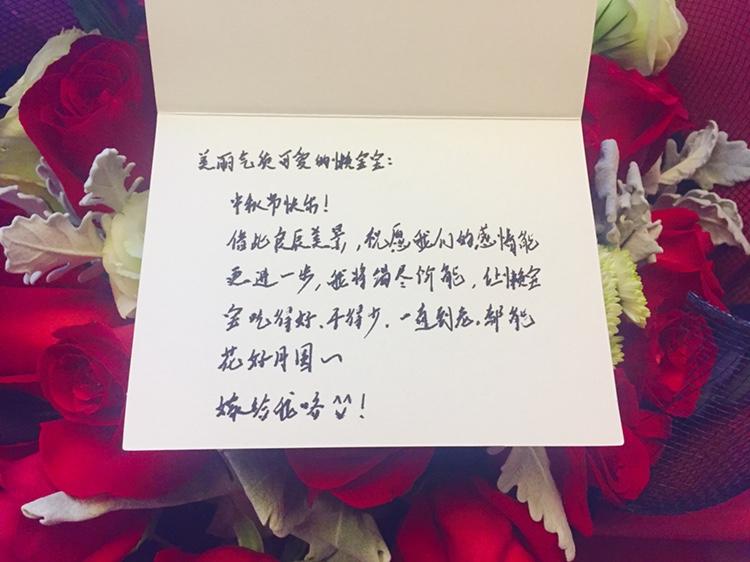 美丽气质可爱的懒宝宝：
中秋节快乐！
借此良辰美景，祝愿我们的感情能
更进一步，我将竭尽所能，让懒宝
宝吃得好、干得少，一直到老，都能
花好月圆~
嫁给我咯！